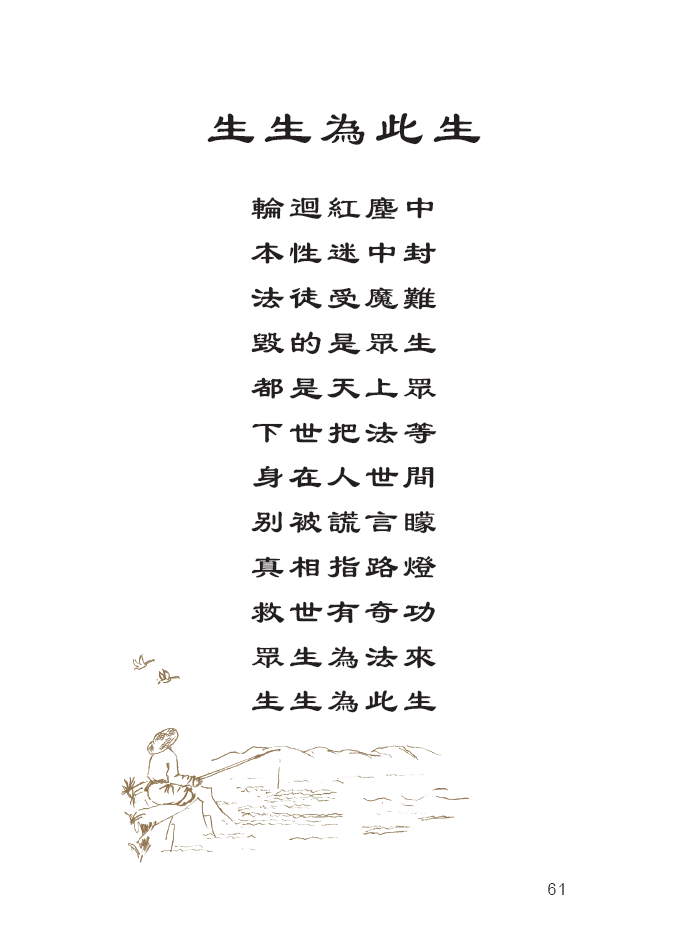 生生為此生
輪迴紅塵中
本性迷中封
法徒受魔難
毀的是眾生
都是天上眾
下世把法等
身在人世間
别被謊言矇
真相指路燈
救世有奇功
眾生為法來
生生為此生
61